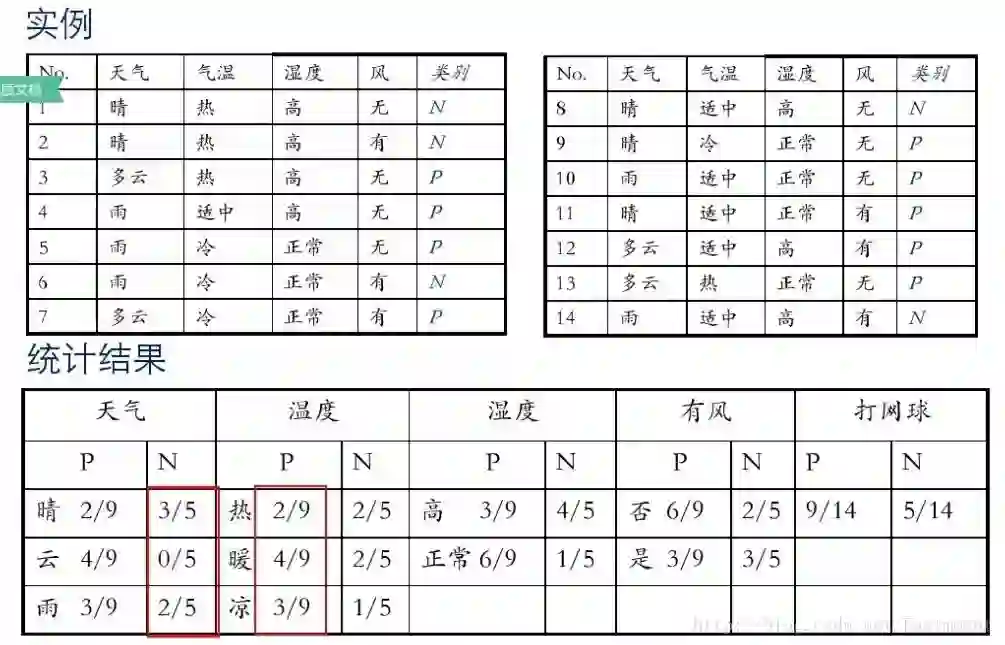 实例
No. 天气 气温 湿度 风 类别
1 晴 热 高 无 N
2 晴 热 高 有 N
3 多云 热 高 无 P
4 雨 适中 高 无 P
5 雨 冷 正常 无 P
6 雨 冷 正常 有 N
7 多云 冷 正常 有 P
No. 天气 气温 湿度 风 类别
8 晴 适中 高 无 N
9 晴 冷 正常 无 P
10 雨 适中 正常 无 P
11 晴 适中 正常 有 P
12 多云 适中 高 有 P
13 多云 热 正常 无 P
14 雨 适中 高 有 N
统计结果
天气 温度 湿度 有风 打网球
P N P N P N P N P N
晴 2/9 3/5 热 2/9 2/5 高 3/9 4/5 否 6/9 2/5 9/14 5/14
云 4/9 0/5 暖 4/9 2/5 正常 6/9 1/5 是 3/9 3/5
雨 3/9 2/5 凉 3/9 1/5